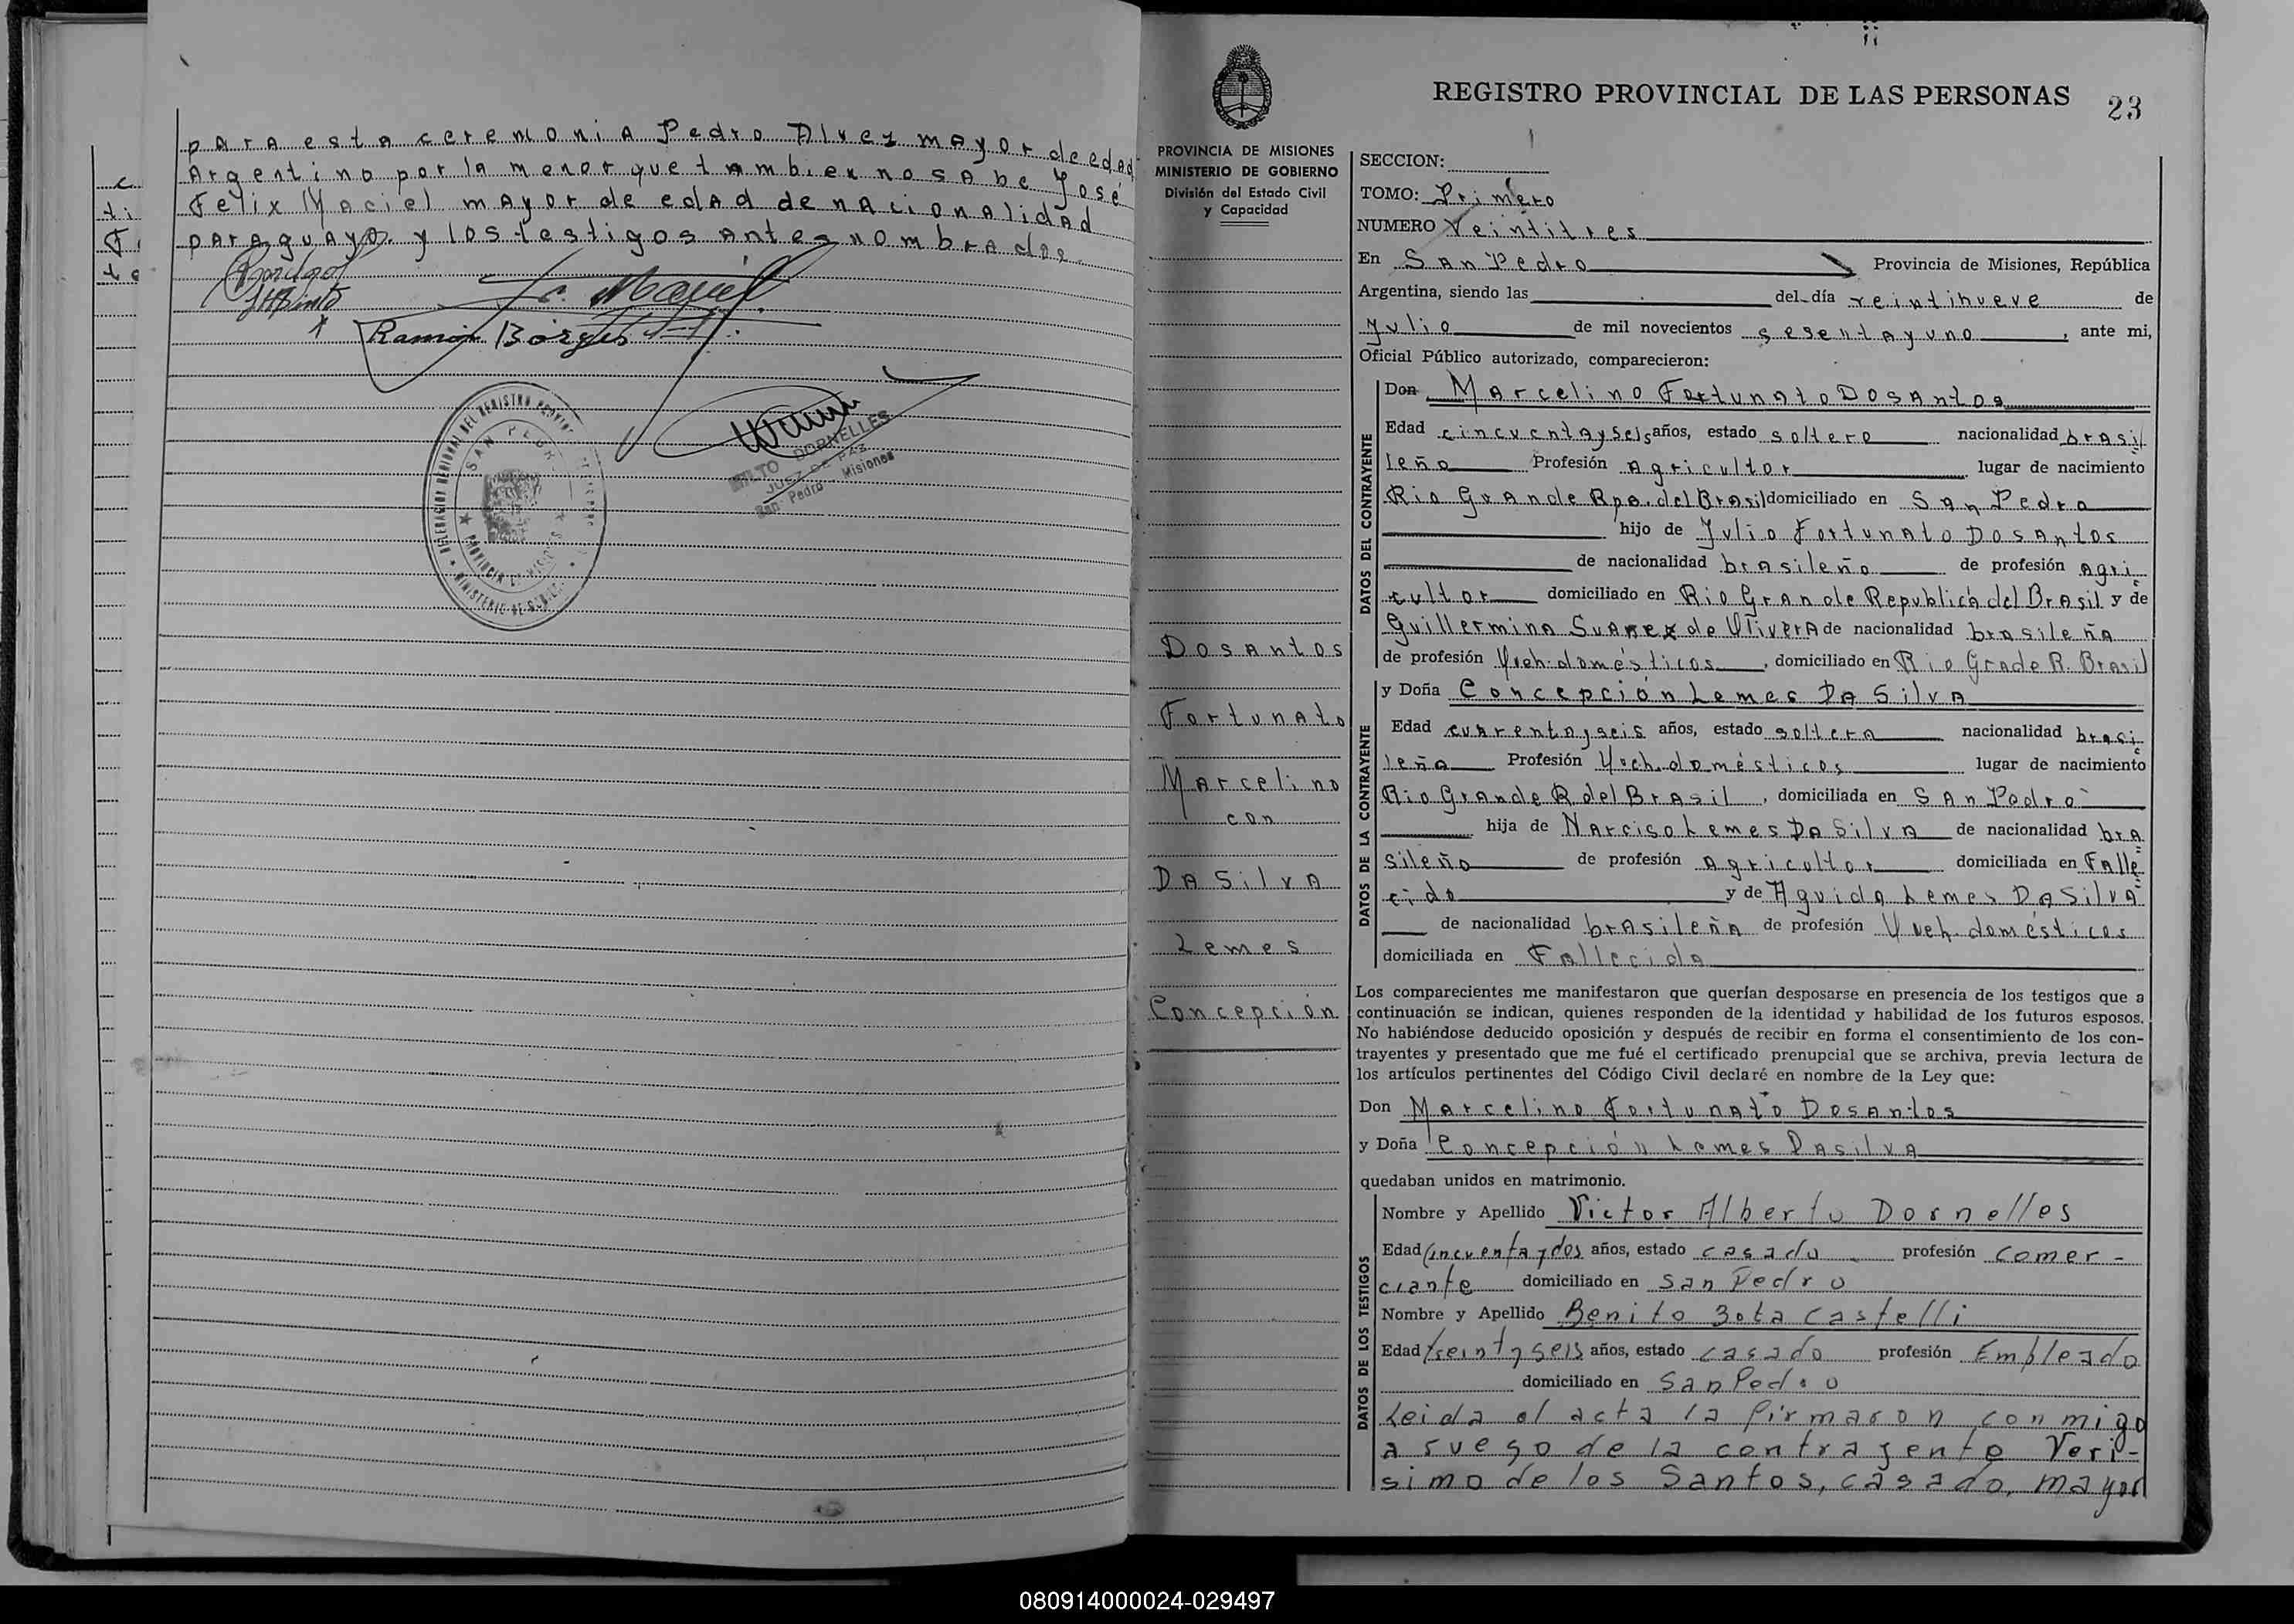 para esta ceremonia Pedro Alvez mayor de edad
Argentino por la menor que tambien no sabe José
Felix Maciel mayor de edad de nacionalidad
paraguayo. y los testigos antes nombrados.
Ramón Borges
SAN PEDRO
DORNELLES
JUEZ DE PAZ
San Pedro - Misiones
REGISTRO PROVINCIAL DE LAS PERSONAS 23
PROVINCIA DE MISIONES
MINISTERIO DE GOBIERNO
División del Estado Civil
y Capacidad
Dosantos
Fortunato
Marcelino
con
Da Silva
Lemes
Concepción
SECCION:
TOMO: Primero
NUMERO Veintitres
En San Pedro Provincia de Misiones, República
Argentina, siendo las del día veintinueve de
Julio de mil novecientos sesentayuno, ante mi,
Oficial Público autorizado, comparecieron:
DATOS DEL CONTRAYENTE
Don Marcelino Fortunato Dosantos
Edad cincuentayseis años, estado soltero nacionalidad brasi
leño Profesión Agricultor lugar de nacimiento
Rio Grande Rpa. del Brasil domiciliado en San Pedro
hijo de Julio Fortunato Dosantos
de nacionalidad brasileño de profesión Agri
cultor domiciliado en Rio Grande Republica del Brasil y de
Guillermina Suarez de Olivera de nacionalidad brasileña
de profesión Queh. domésticos, domiciliado en Rio Grade R. Brasil
DATOS DE LA CONTRAYENTE
y Doña Concepción Lemes Da Silva
Edad cuarentayseis años, estado soltera nacionalidad brasi
leña Profesión Queh. domésticos lugar de nacimiento
Rio Grande R. del Brasil, domiciliada en San Pedro
hija de Narciso Lemes Da Silva de nacionalidad bra
sileño de profesión Agricultor domiciliada en Falle
cido y de Aguida Lemes Da Silva
de nacionalidad brasileña de profesión Queh. domésticos
domiciliada en Fallecida
Los comparecientes me manifestaron que querían desposarse en presencia de los testigos que a
continuación se indican, quienes responden de la identidad y habilidad de los futuros esposos.
No habiéndose deducido oposición y después de recibir en forma el consentimiento de los con-
trayentes y presentado que me fué el certificado prenupcial que se archiva, previa lectura de
los artículos pertinentes del Código Civil declaré en nombre de la Ley que:
Don Marcelino Fortunato Dosantos
y Doña Concepción Lemes Dasilva
quedaban unidos en matrimonio.
DATOS DE LOS TESTIGOS
Nombre y Apellido Victor Alberto Dornelles
Edad cincuentaydos años, estado casado profesión comer-
ciante domiciliado en San Pedro
Nombre y Apellido Benito Zota Castelli
Edad años, estado casado profesión Empleado
domiciliado en San Pedro
Leida el acta la firmaron conmigo
a ruego de la contrayente Veri-
simo de los Santos, casado, mayor
080914000024-029497